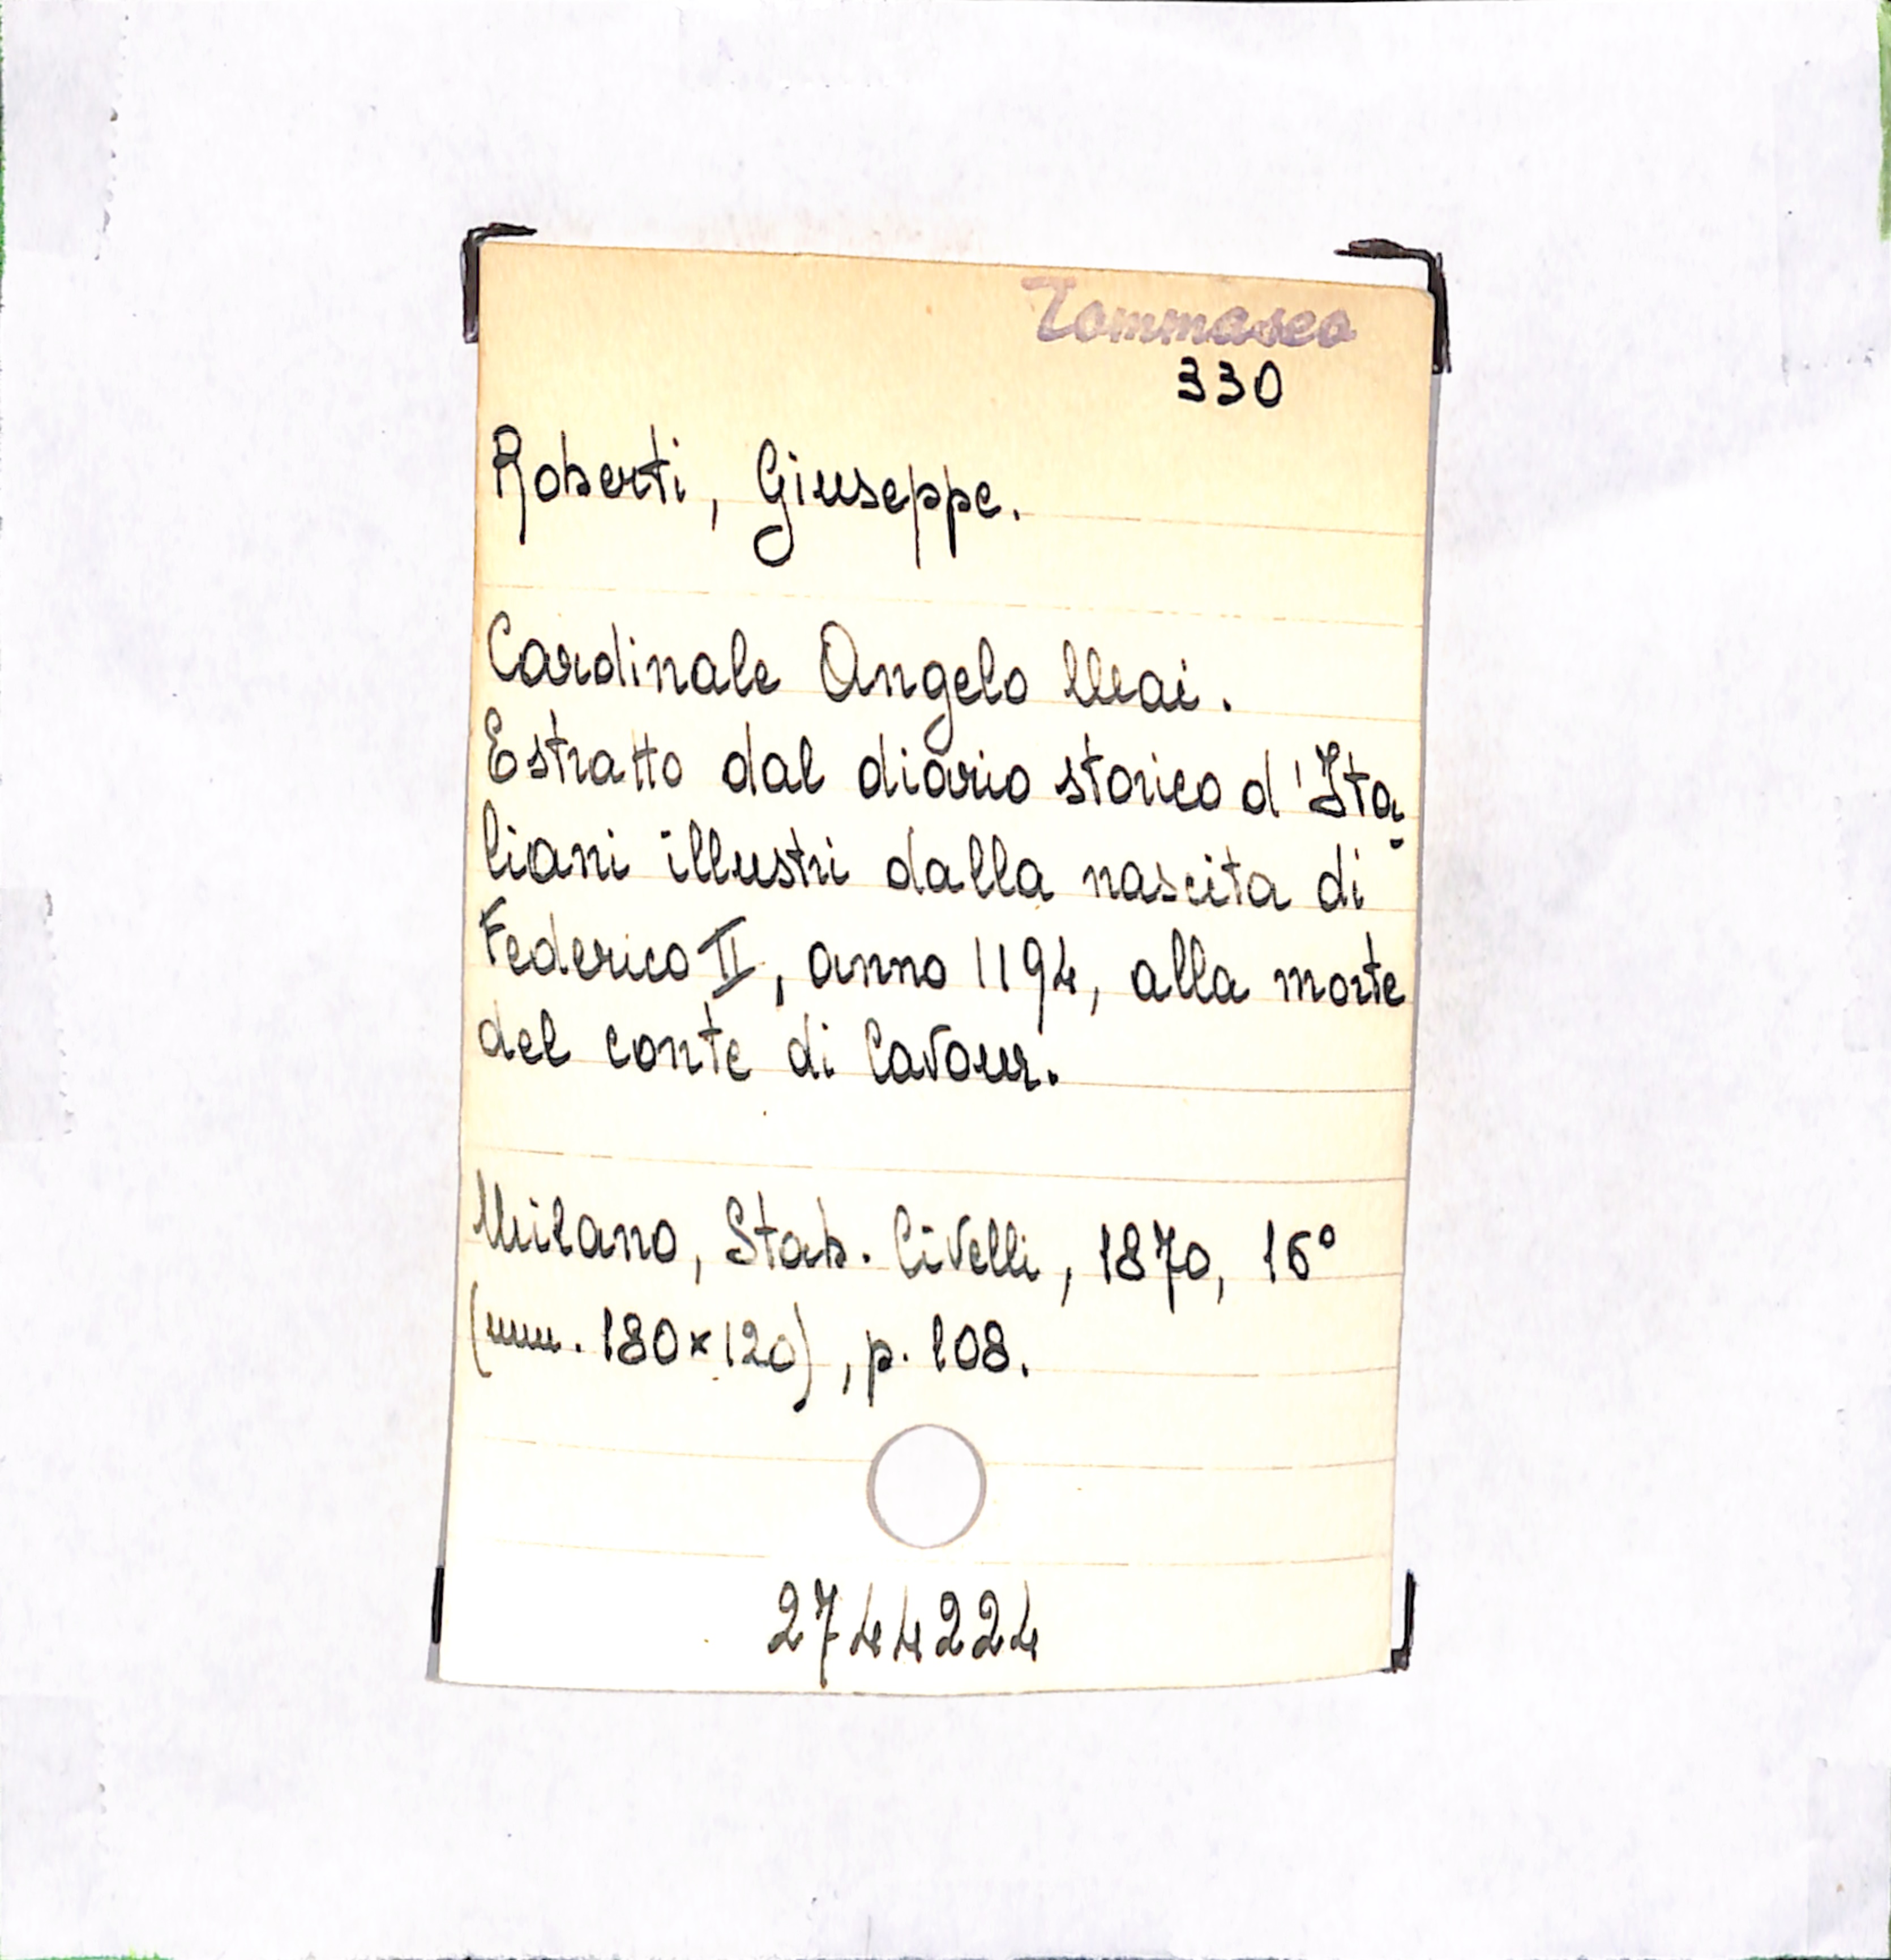 Tommaseo
330
Roberti, Giuseppe.
Cardinale Angelo Mai.
Estratto dal diario storico d'Ita-
liani illustri dalla nascita di
Federico II, anno 1194, alla morte
del conte di Cavour.
Milano, Stab. Civelli, 1870, 16°
(mm. 180×120), p. 108.
2744224